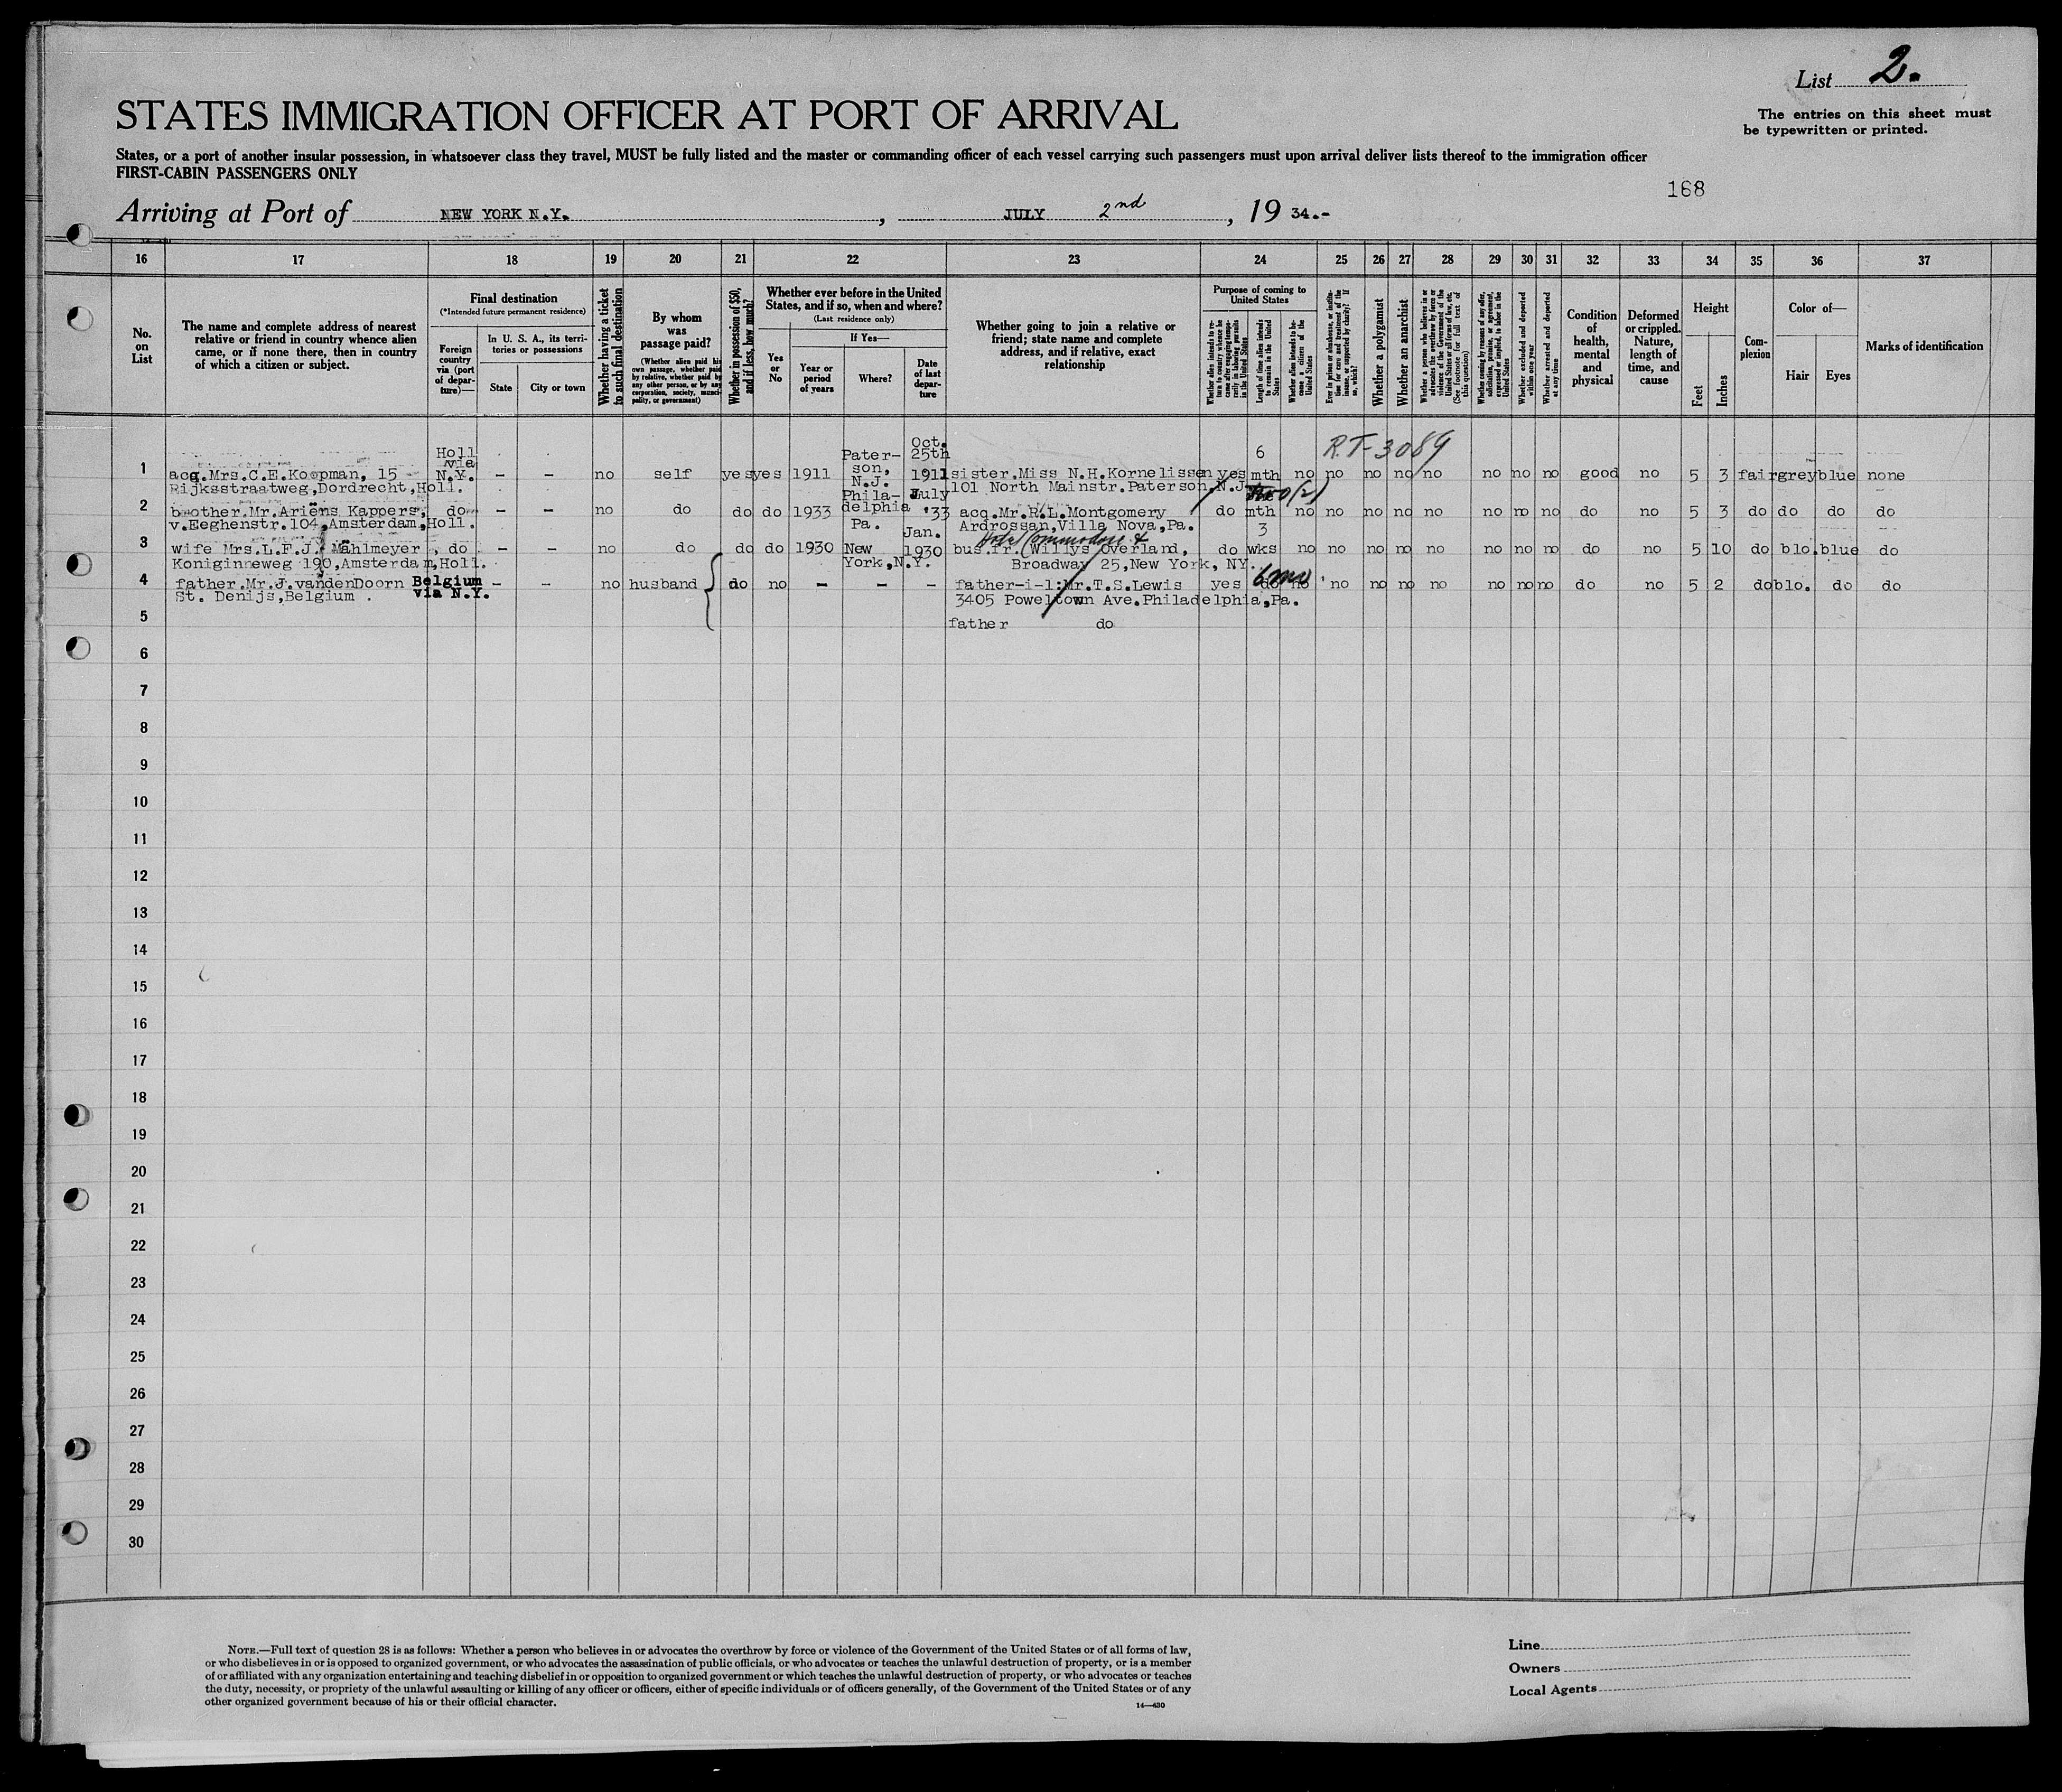 List 2.
The entries on this sheet must
be typewritten or printed.
STATES IMMIGRATION OFFICER AT PORT OF ARRIVAL
States, or a port of another insular possession, in whatsoever class they travel, MUST be fully listed and the master or commanding officer of each vessel carrying such passengers must upon arrival deliver lists thereof to the immigration officer
FIRST-CABIN PASSENGERS ONLY
168
Arriving at Port of NEW YORK N.Y. , JULY 2nd , 19 34.-
16 17 18 19 20 21 22 23 24 25 26 27 28 29 30 31 32 33 34 35 36 37
No. on List
The name and complete address of nearest relative or friend in country whence alien came, or if none there, then in country of which a citizen or subject.
Final destination
(*Intended future permanent residence)
Foreign country via (port of departure)—
In U. S. A., its territories or possessions
State
City or town
Whether having a ticket to such final destination
By whom was passage paid?
(Whether alien paid his own passage, whether paid by relative, whether paid by any other person, or by any corporation, society, municipality, or government)
Whether in possession of $50, and if less, how much?
Whether ever before in the United States, and if so, when and where?
(Last residence only)
Yes or No
If Yes—
Year or period of years
Where?
Date of last departure
Whether going to join a relative or friend; state name and complete address, and if relative, exact relationship
Purpose of coming to United States
Whether alien intends to return to country whence he came after engaging temporarily in laboring pursuits in the United States
Length of time alien intends to remain in the United States
Whether alien intends to become a citizen of the United States
Ever in prison or almshouse, or institution for care and treatment of the insane, or supported by charity? If so, which?
Whether a polygamist
Whether an anarchist
Whether a person who believes in or advocates the overthrow by force or violence of the Government of the United States or all forms of law, etc. (See footnote for full text of this question)
Whether coming by reasons of any offer, solicitation, promise, or agreement, expressed or implied, to labor in the United States
Whether excluded and deported within one year
Whether arrested and deported at any time
Condition of health, mental and physical
Deformed or crippled. Nature, length of time, and cause
Height
Feet
Inches
Complexion
Color of—
Hair
Eyes
Marks of identification
R.T-3089
1 acq.Mrs.C.E.Koopman, 15 Holl via N.Y. - - no self yes yes 1911 Paterson, N.J. Oct. 25th 1911 sister.Miss N.H.Kornelissen yes 6 mth no no no no no no no no good no 5 3 fair grey blue none
Rijksstraatweg,Dordrecht,Holl. 101 North Mainstr.Paterson,N.J.
2 brother.Mr.Ariëns Kappers, do - - no do do do 1933 Philadelphia Pa. July '33 acq.Mr.R.L.Montgomery do mth no no no no no no no no do no 5 3 do do do do
v.Eeghenstr.104,Amsterdam,Holl. Ardrossan,Villa Nova,Pa.
Hotel Commodore &
3 wife Mrs.L.F.J. Mählmeyer, do - - no do do do 1930 New York,N.Y. Jan. 1930 bus.fr.(Willys Overland, do 3 wks no no no no no no no no do no 5 10 do blo. blue do
Koniginneweg 190,Amsterdam,Holl. Broadway 25,New York, NY.
4 father.Mr.J.vandenDoorn Belgium via N.Y. - - no husband do no - - - father-i-l:Mr.T.S.Lewis yes 6mo no no no no no no no no do no 5 2 do blo. do do
St. Denijs,Belgium . 3405 Poweltown Ave.Philadelphia,Pa.
5 father do
6
7
8
9
10
11
12
13
14
15
16
17
18
19
20
21
22
23
24
25
26
27
28
29
30
NOTE.—Full text of question 28 is as follows: Whether a person who believes in or advocates the overthrow by force or violence of the Government of the United States or of all forms of law,
or who disbelieves in or is opposed to organized government, or who advocates the assassination of public officials, or who advocates or teaches the unlawful destruction of property, or is a member
of or affiliated with any organization entertaining and teaching disbelief in or opposition to organized government or which teaches the unlawful destruction of property, or who advocates or teaches
the duty, necessity, or propriety of the unlawful assaulting or killing of any officer or officers, either of specific individuals or of officers generally, of the Government of the United States or of any
other organized government because of his or their official character.
14—430
Line
Owners
Local Agents